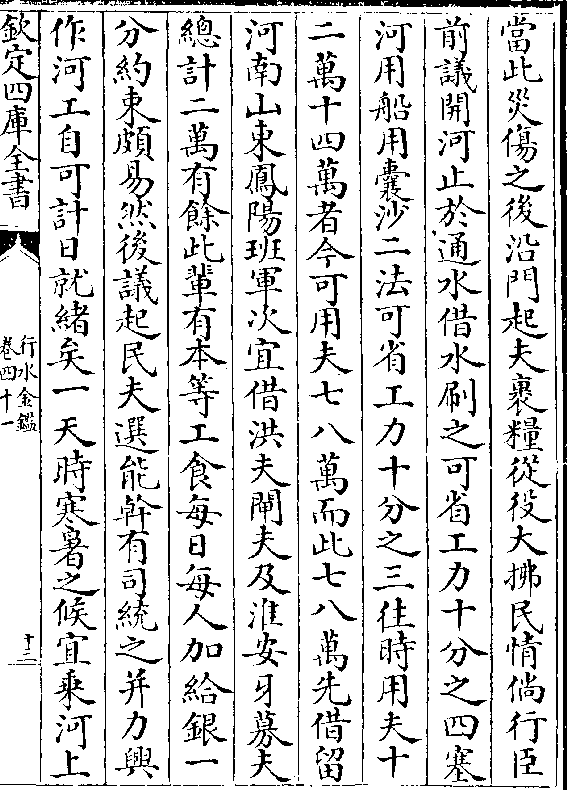 當此災傷之後沿門起夫裹糧從役大拂民情倘行臣
前議開河止於通水借水刷之可省工力十分之四塞
河用船用囊沙二法可省工力十分之三往時用夫十
二萬十四萬者今可用夫七八萬而此七八萬先借留
河南山東鳳陽班軍次宜借洪夫閘夫及淮安牙募夫
總計二萬有餘此輩有本等工食每日每人加給銀一
分約束頗易然後議起民夫選能幹有司統之并力興
作河工自可計日就緒矣一天時寒暑之候宜乘河上
欽定四庫全書
行水金鑑
卷四十一
十二